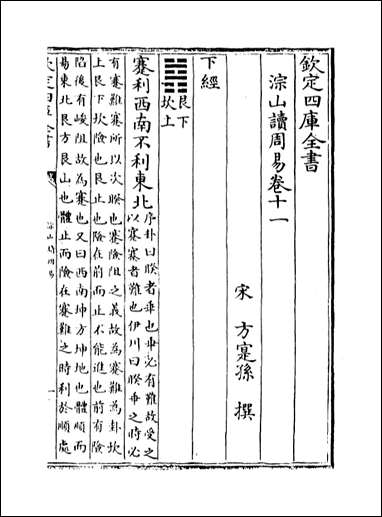 欽定四庫全書
淙山讀周易卷十一
宋 方寔孫 撰
下經
䷦ 艮下
坎上
蹇利西南不利東北
序卦曰睽者乖也乖必有難故受之
以蹇蹇者難也伊川曰睽乖之時必
有蹇難蹇所以次睽也蹇險阻之義故為蹇難為卦坎
上艮下坎險也艮止也險在前而止不能進也前有險
陷後有峻阻故為蹇也又曰西南坤方坤地也體順而
易東北艮方艮山也體止而險在蹇難之時利於順處